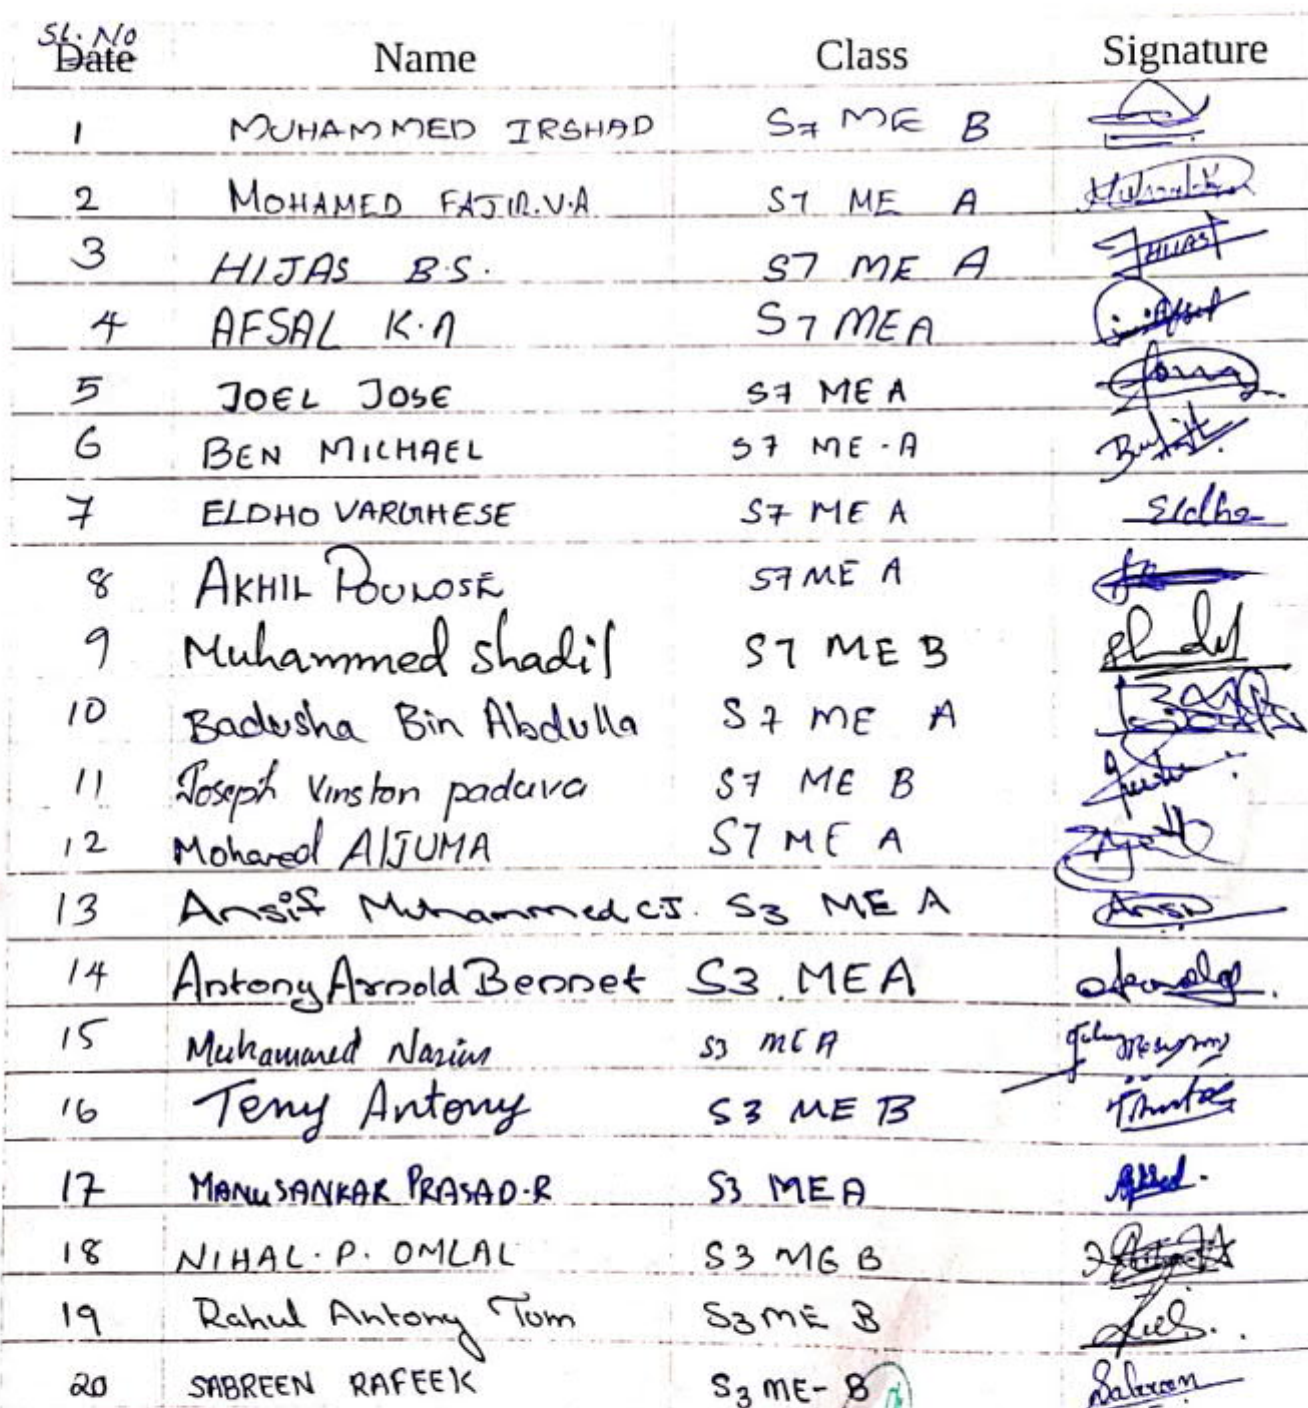 Sl. No
Date Name Class Signature
1 MUHAMMED IRSHAD S7 ME B
2 MOHAMED FAJIR.V.A S7 ME A
3 HIJAS B.S. S7 ME A HIJAS
4 AFSAL K.A S7 MEA Afsal
5 JOEL JOSE S7 ME A
6 BEN MICHAEL S7 ME - A
7 ELDHO VARGHESE S7 ME A Eldho
8 AKHIL POULOSE S7 ME A
9 Muhammed shadil S7 ME B
10 Badusha Bin Abdulla S7 ME A
11 Joseph Vinston paduva S7 ME B
12 Mohamed AlJUMA S7 ME A
13 Ansif Muhammed C.J. S3 ME A
14 Antony Arnold Bennet S3 MEA
15 Muhammed S3 ME A
16 Teny Antony S3 ME B
17 MANUSANKAR PRASAD.R S3 MEA
18 NIHAL. P. OMLAL S3 ME B
19 Rahul Antony Tom S3 ME B
20 SABREEN RAFEEK S3 ME- B Sabreen